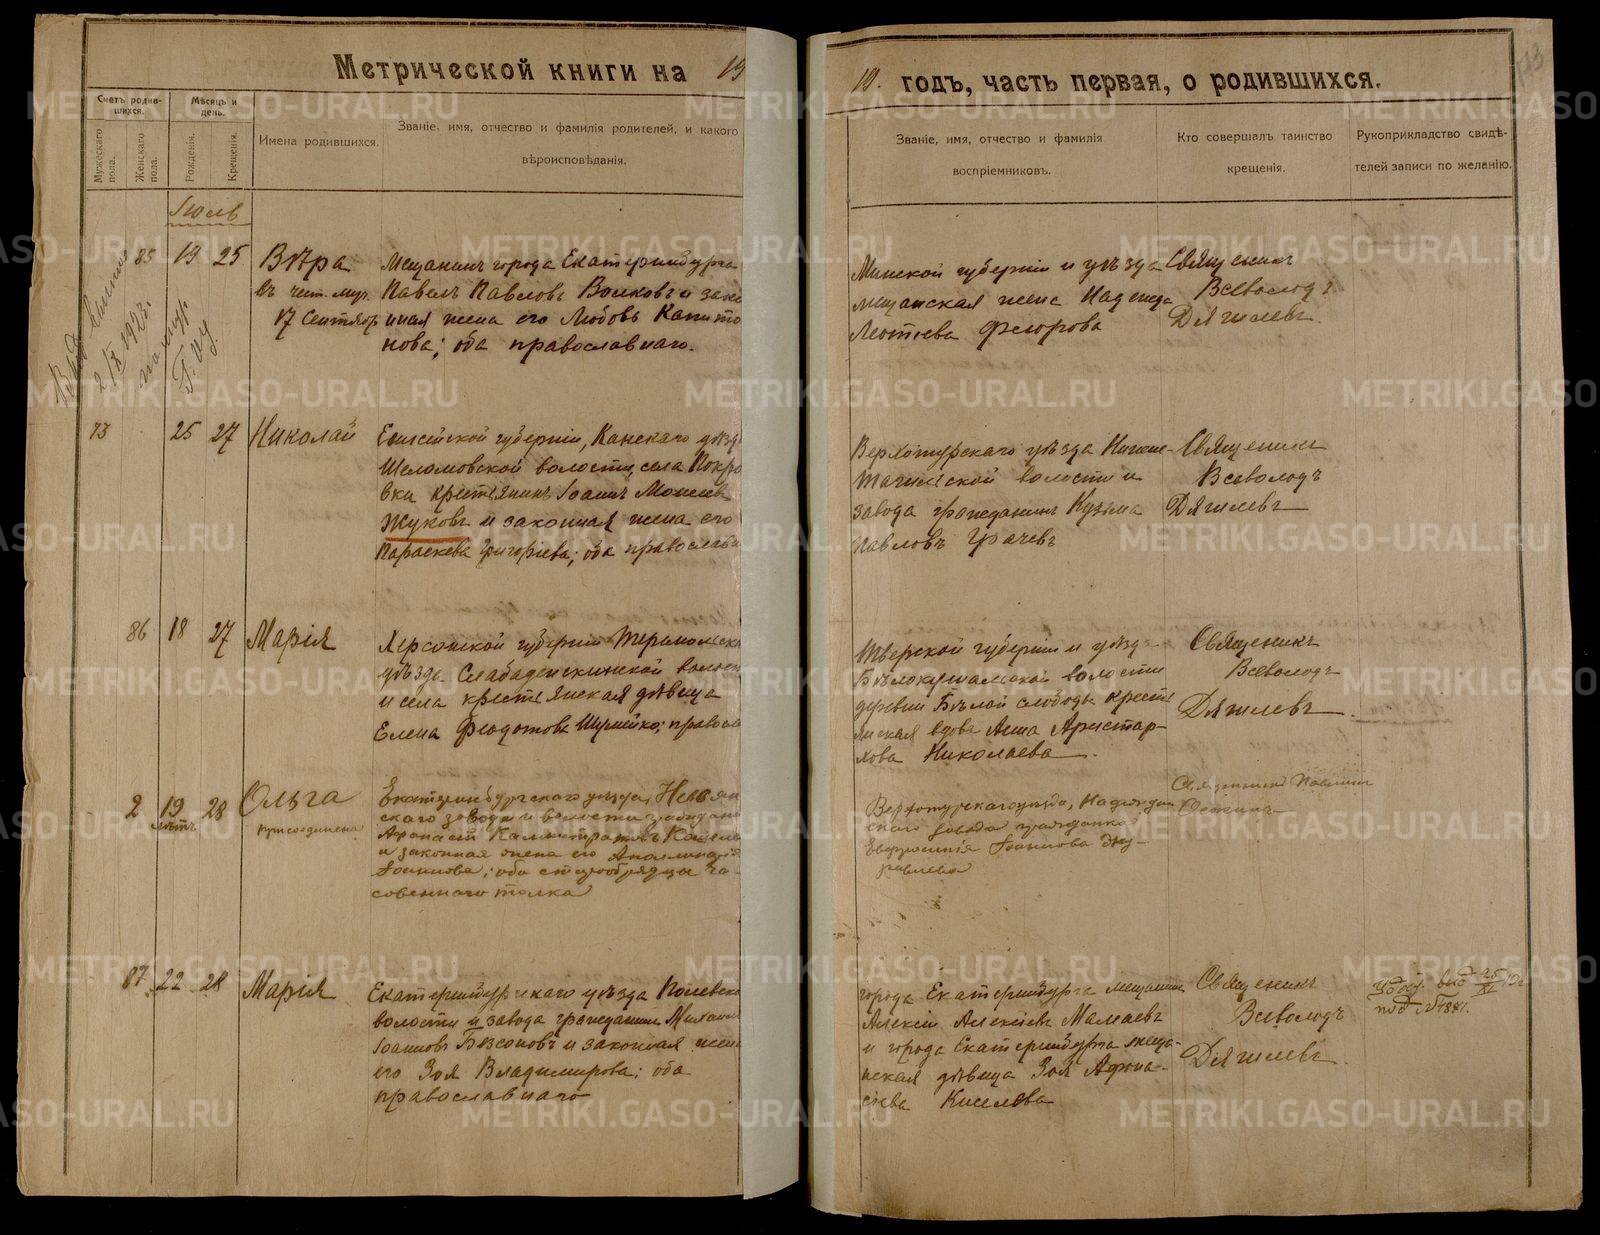 Метрической книги на 19
19. годъ, часть первая, о родившихся.
Счетъ родив-
шихся.
Мужескаго
пола.
Женскаго
пола.
Мѣсяцъ и
день.
Рожденія.
Крещенія.
Имена родившихся.
Званіе, имя, отчество и фамилія родителей, и какого
вѣроисповѣданія.
Званіе, имя, отчество и фамилія
воспріемниковъ.
Кто совершалъ таинство
крещенія.
Рукоприкладство свидѣ-
телей записи по желанію.
Іюль
85 19 25 Вѣра
въ чест. муч.
17 Сентябр
Мещанинъ города Екатеринбурга
Павелъ Павловъ Волковъ и зако
нная жена его Любовь Капито
нова; оба православнаго.
Минской губерніи и уѣзда
мещанская жена Надежда
Леонтіева Феодорова
Священникъ
Всеволодъ
Дягилевъ
2/IX 1923 г.
73 25 27 Николай
Енисейской губерніи, Канскаго уѣзд
Шеломовской волости, села Покро
вки крестьянинъ Іоаннъ Моисеев
Жуковъ и законная жена его
Параскева Григоріева; оба православн
Верхотурскаго уѣзда Нижне-
тагильской волости и
завода гражданинъ Кузьма
Павловъ Грачевъ
Священникъ
Всеволодъ
Дягилевъ
86 18 27 Марія
Херсонской губерніи Тираспольск
уѣзда Слабадзейскинской волост
и села крестьянская дѣвица
Елена Феодотова Шумейко; правосла
Тверской губерніи и уѣзд-
Бѣлокушальской волости
деревни Бѣлой слободы крест
янская вдова Анна Аристар-
хова Николаева
Священникъ
Всеволодъ
Дягилевъ
2 19 28 Ольга
лѣтъ присоединена
Екатеринбургскаго уѣзда, Невьян
скаго завода и волости гражданин
Афанасій Каллистратовъ
и законная жена его Аполлинарія
Іоакимова; оба старообрядцы ча-
совеннаго толка
Верхотурскаго уѣзда, Надеждин
скаго завода гражданка
Евфросинія Іоакимова Жу-
равлева
Священникъ
87 22 28 Марія
Екатеринбургскаго уѣзда Полевско
волости и завода гражданинъ Михаил
Іоанновъ Безсоновъ и законная жена
его Зоя Владимирова; оба
православнаго
города Екатеринбурга мещанинъ
Алексій Алексіевъ Мамаевъ
и города Екатеринбурга меща-
нская дѣвица Зоя Афона-
сіева Киселева
Священникъ
Всеволодъ
Дягилевъ
METRIKI.GASO-URAL.RU